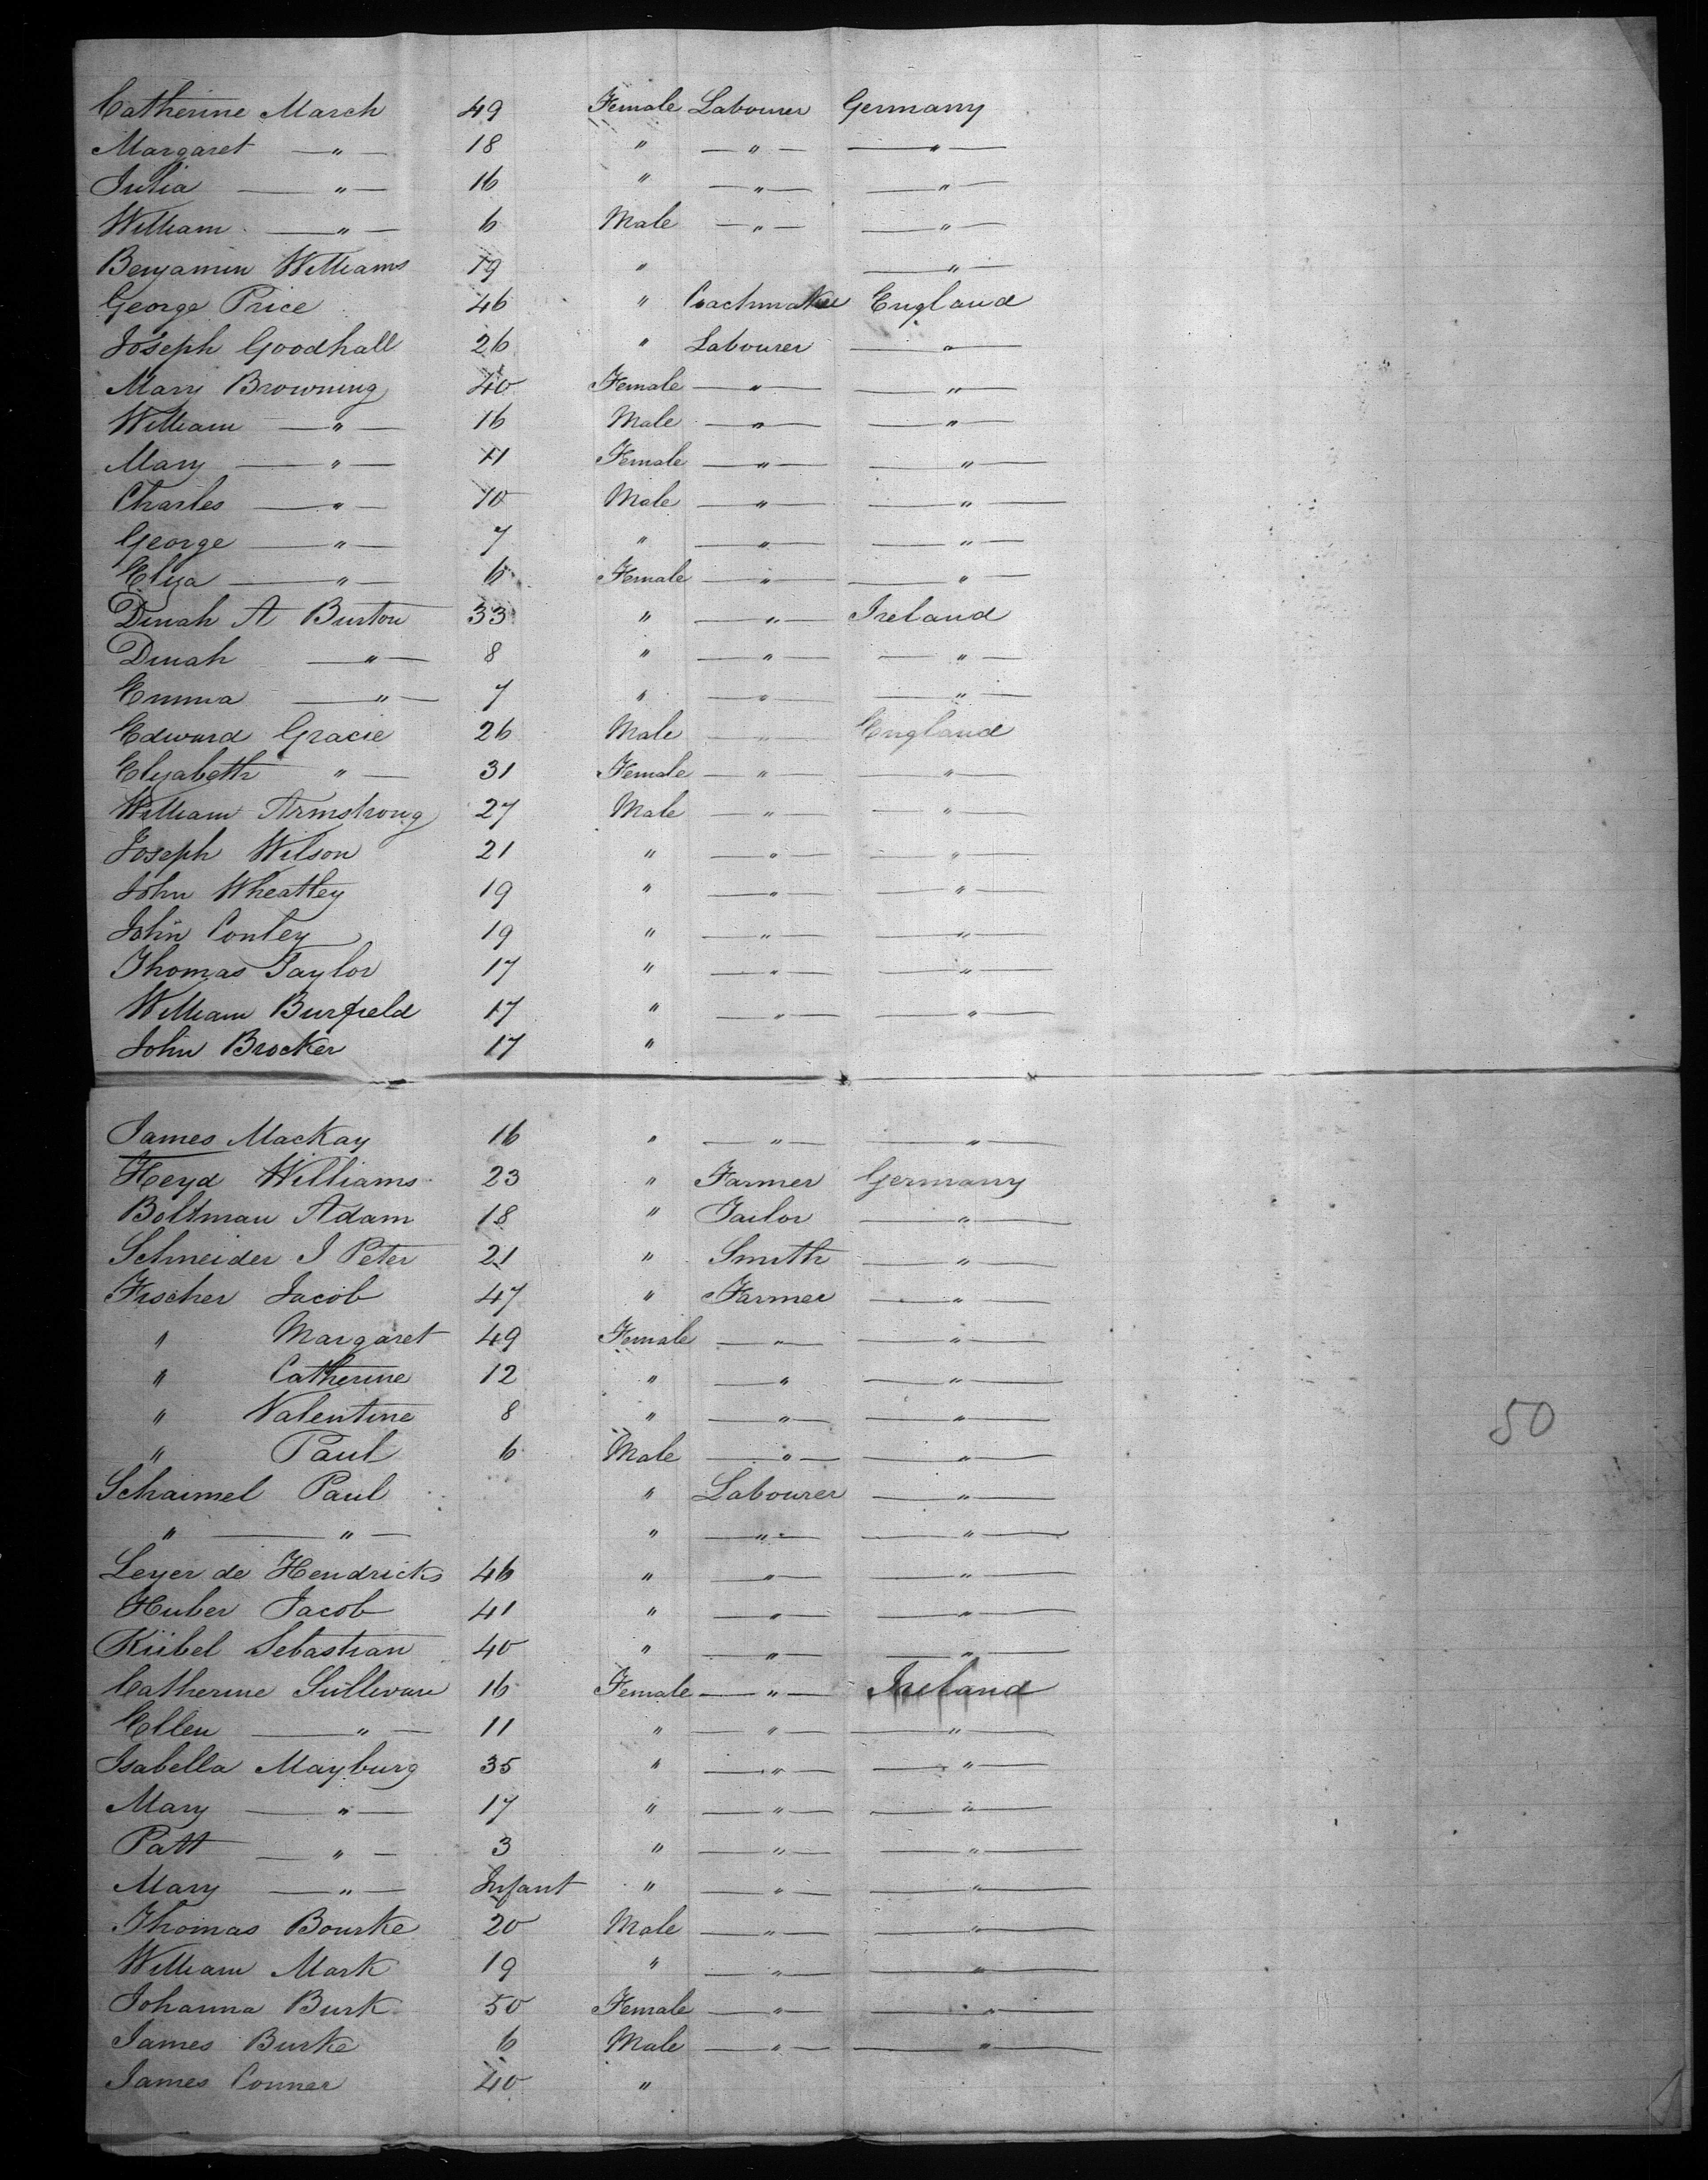 Catherine March 49 Female Labourer Germany
Margaret — " — 18 " — " — — " —
Julia — " — 16 " — " — — " —
William — " — 6 Male — " — — " —
Benjamin Williams 19 " — " —
George Price 46 " Coachmaker England
Joseph Goodhall 26 " Labourer — " —
Mary Browning 40 Female — " — — " —
William — " — 16 Male — " — — " —
Mary — " — 11 Female — " — — " —
Charles — " — 10 Male — " — — " —
George — " — 7 " — " — — " —
Eliza — " — 6 Female — " — — " —
Dinah A Burton 33 " — " — Ireland
Dinah — " — 8 " — " — — " —
Emma — " — 7 " — " — — " —
Edward Gracie 26 Male — " — England
Elizabeth " — 31 Female — " — — " —
William Armstrong 27 Male — " — — " —
Joseph Wilson 21 " — " — — " —
John Wheatley 19 " — " — — " —
John Conley 19 " — " — — " —
Thomas Taylor 17 " — " — — " —
William Burfield 17 " — " — — " —
John Brocker 17 "
James MacKay 16 " — " — — " —
Heyd Williams 23 " Farmer Germany
Boltman Adam 18 " Tailor — " —
Schneider J Peter 21 " Smith — " —
Fischer Jacob 47 " Farmer — " —
" Margaret 49 Female — " — — " —
" Catherine 12 " — " — — " —
" Valentine 8 " — " — — " —
" Paul 6 Male — " — — " —
50
Schaimel Paul " Labourer — " —
" — " — " — " — — " —
Leyer de Hendricks 46 " — " — — " —
Huber Jacob 41 " — " — — " —
Kübel Sebastian 40 " — " — — " —
Catherine Sullivan 16 Female — " — Ireland
Ellen — " — 11 " — " — — " —
Isabella Mayburg 35 " — " — — " —
Mary — " — 17 " — " — — " —
Patt — " — 3 " — " — — " —
Mary — " — Infant " — " — — " —
Thomas Bourke 20 Male — " — — " —
William Mark 19 " — " — — " —
Johanna Burk 50 Female — " — — " —
James Burke 6 Male — " — — " —
James Conner 40 "